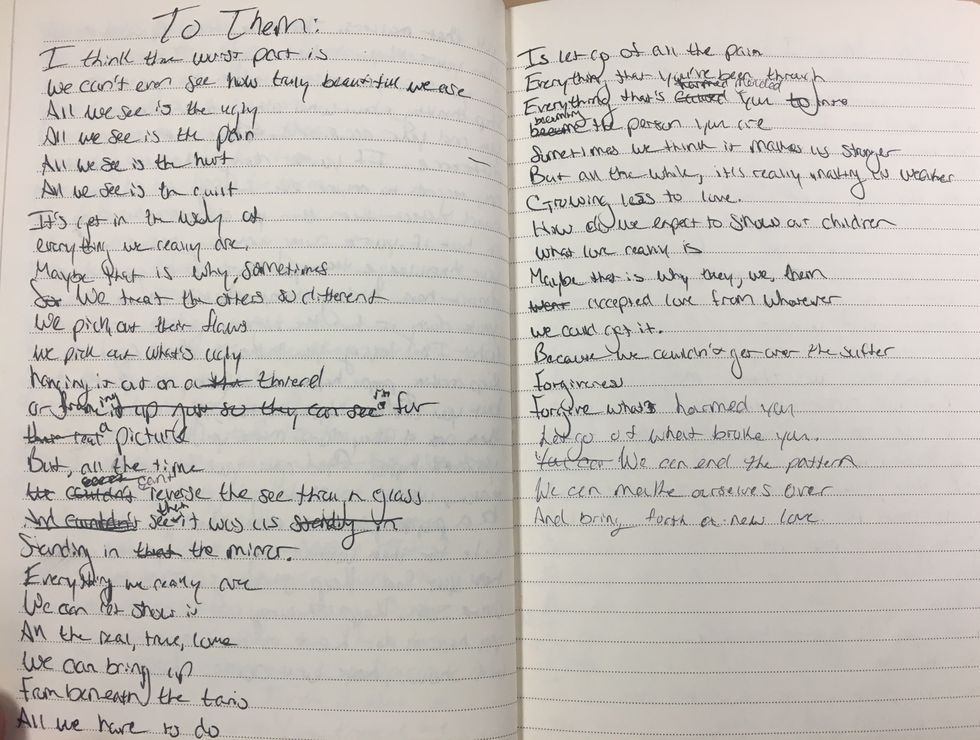 To Them:
I think the worst part is
we can't even see how truly beautiful we are
All we see is the ugly
All we see is the pain
All we see is the hurt
All we see is the guilt
It's get in the way of
everything we really are.
Maybe that is why, sometimes
We treat the others so different
We pick out their flaws
We pick out what's ugly
hanging it out on a thread
or framing them for
a picture
But, all the time
can't reverse the see through glass
see then it was us
Standing in the mirror.
Everything we really are
We can let show it
All the real, true, love
We can bring up
From beneath the
All we have to do
Is let go of all the pain
Everything that you've been through
Everything that's molded you into
becoming the person you are
Sometimes we think it makes us stronger
But all the while, it's really making us weaker
Growing less to love.
How do we expect to show our children
what love really is
Maybe that is why they, we, them
accepted love from whatever
we could get it.
Because we couldn't get over the suffer
Forgiveness
Forgive what's harmed you
Let go of what broke you.
We can end the pattern
We can make ourselves over
And bring forth a new love.